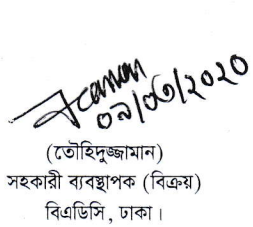 ০৯/০৩/২০২০
(তৌহিদুজ্জামান)
সহকারী ব্যবস্থাপক (বিক্রয়)
বিএডিসি, ঢাকা।